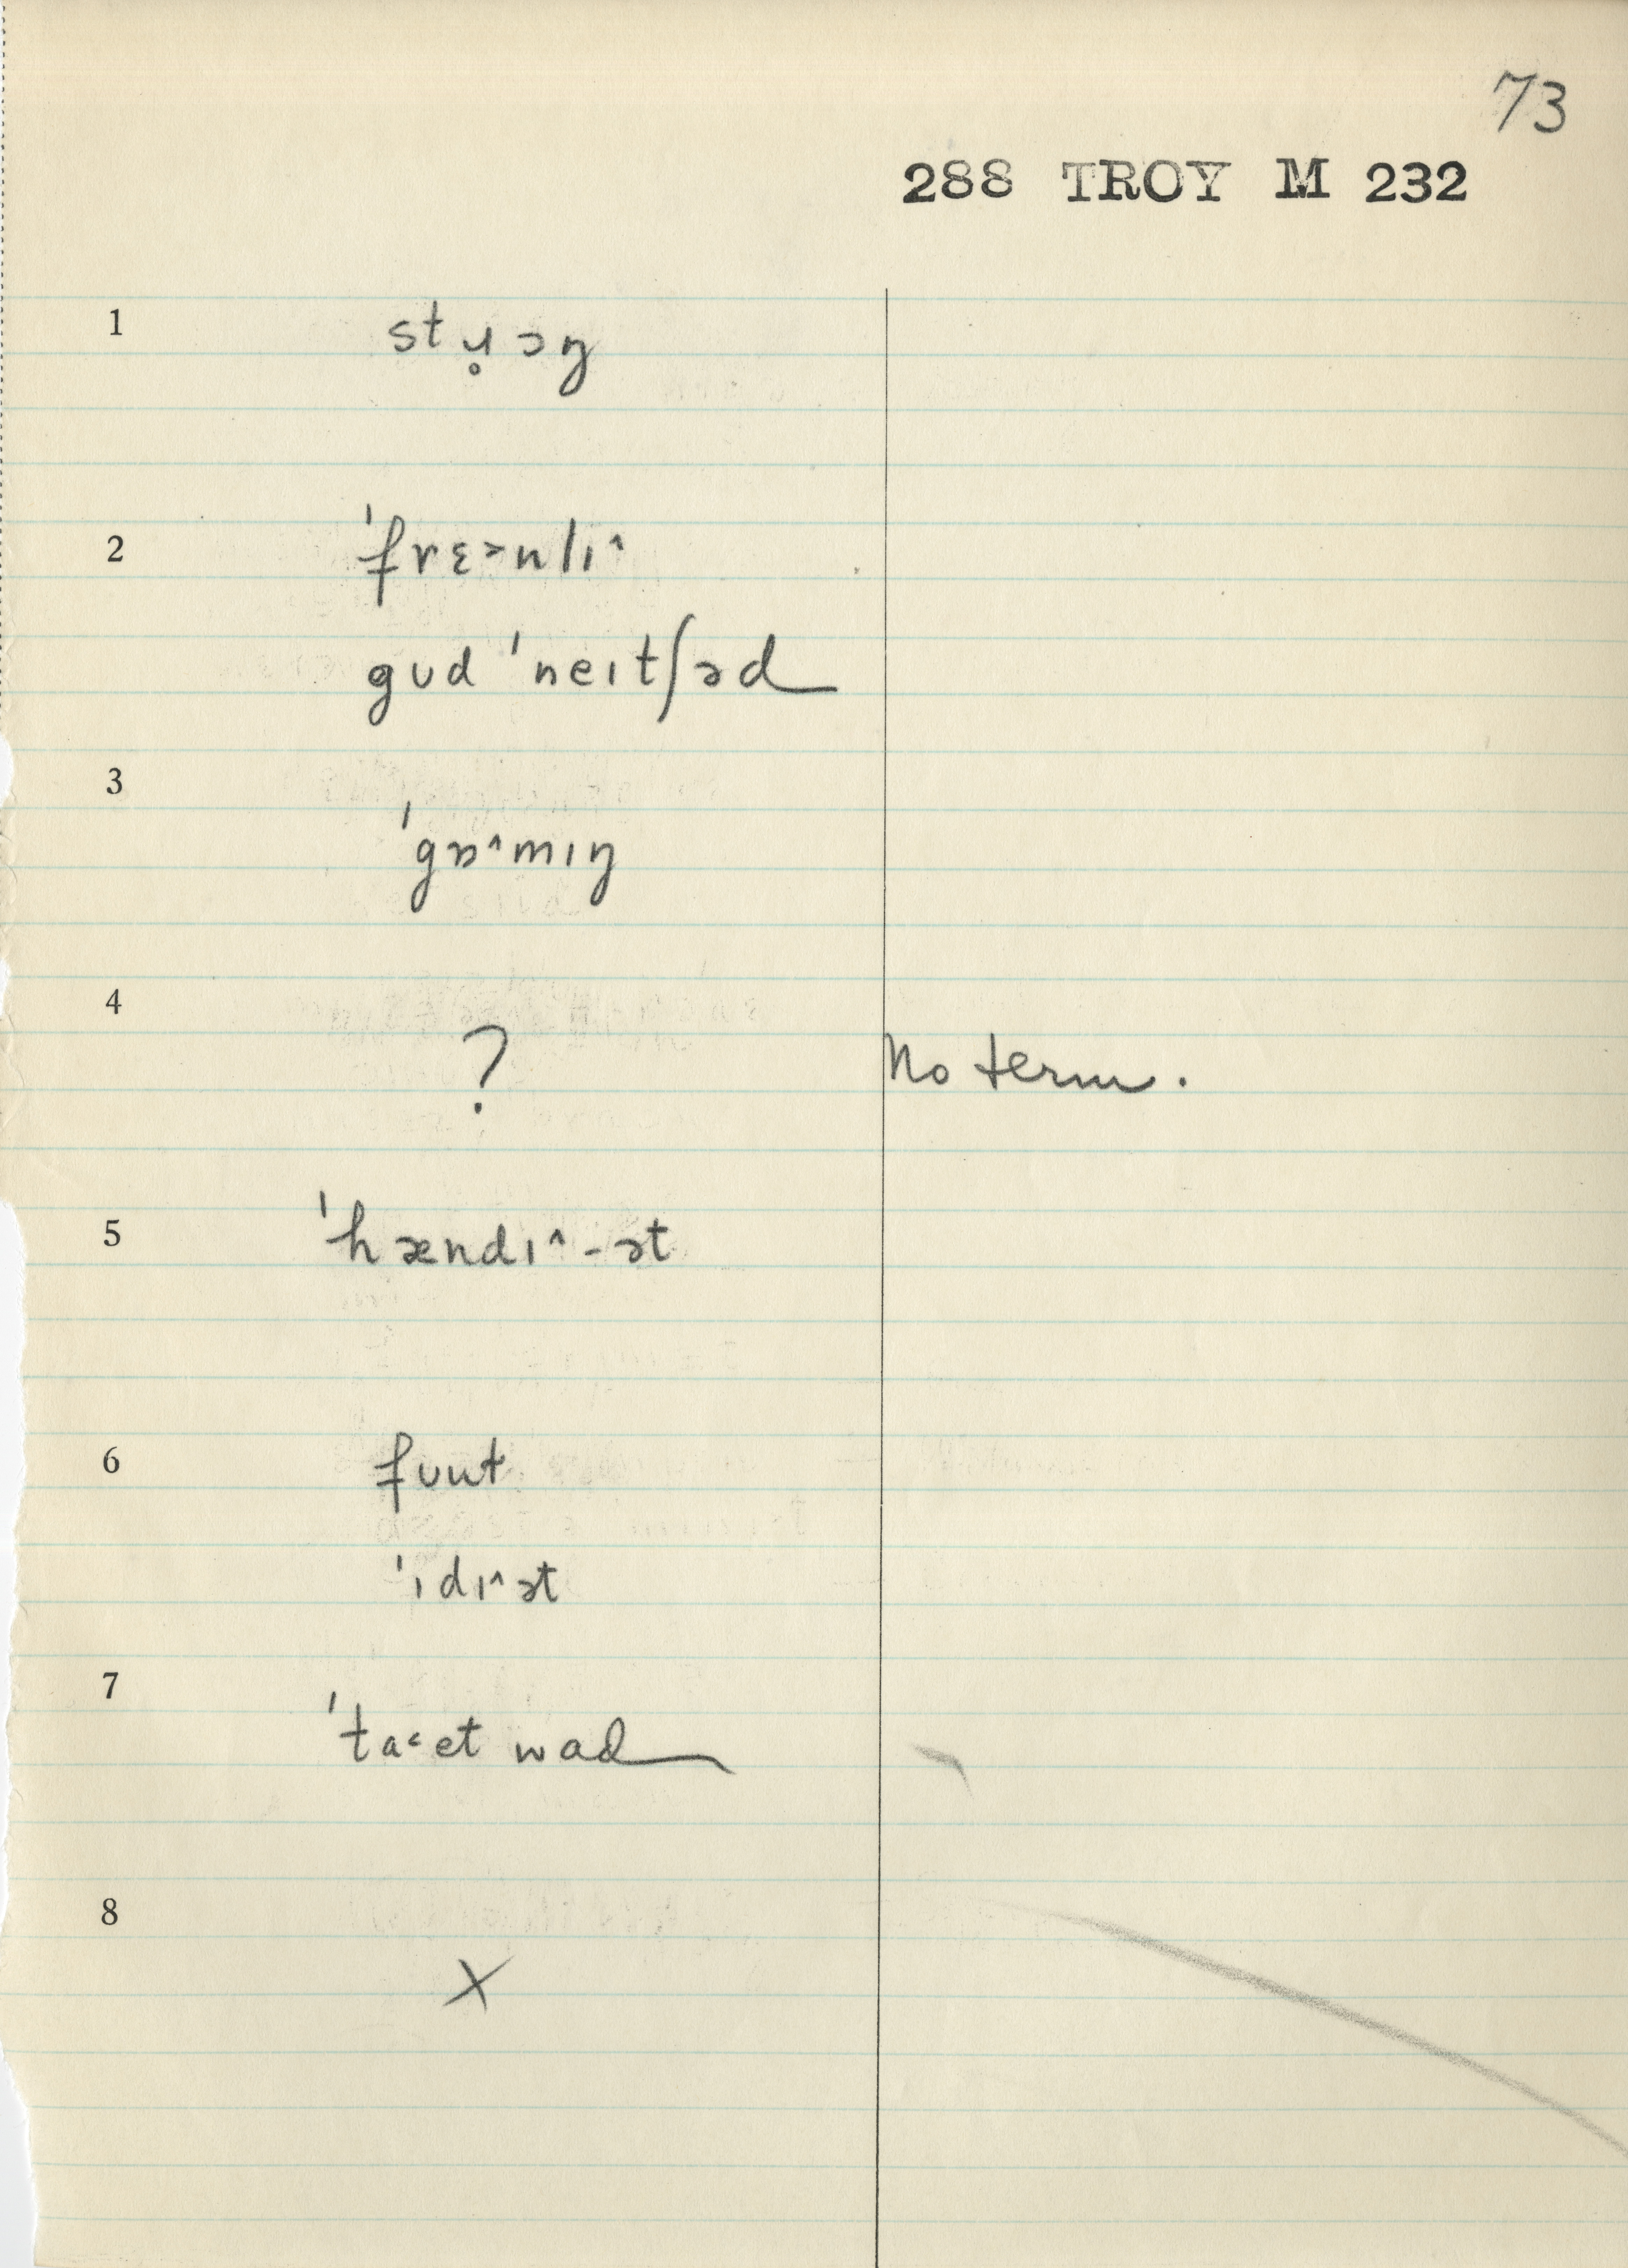 73
288 TROY M 232
1
stɹ̥ɔŋ
2
ˈfrɛ˃nlɪ˄
gʊd ˈneɪtʃəd
3
ˈgɒ˄mɪŋ
4
? No term.
5
ˈhændɪ˄-ət
6
fʊut
ˈɪdɪ˄ət
7
ˈta˂et wad
8
X